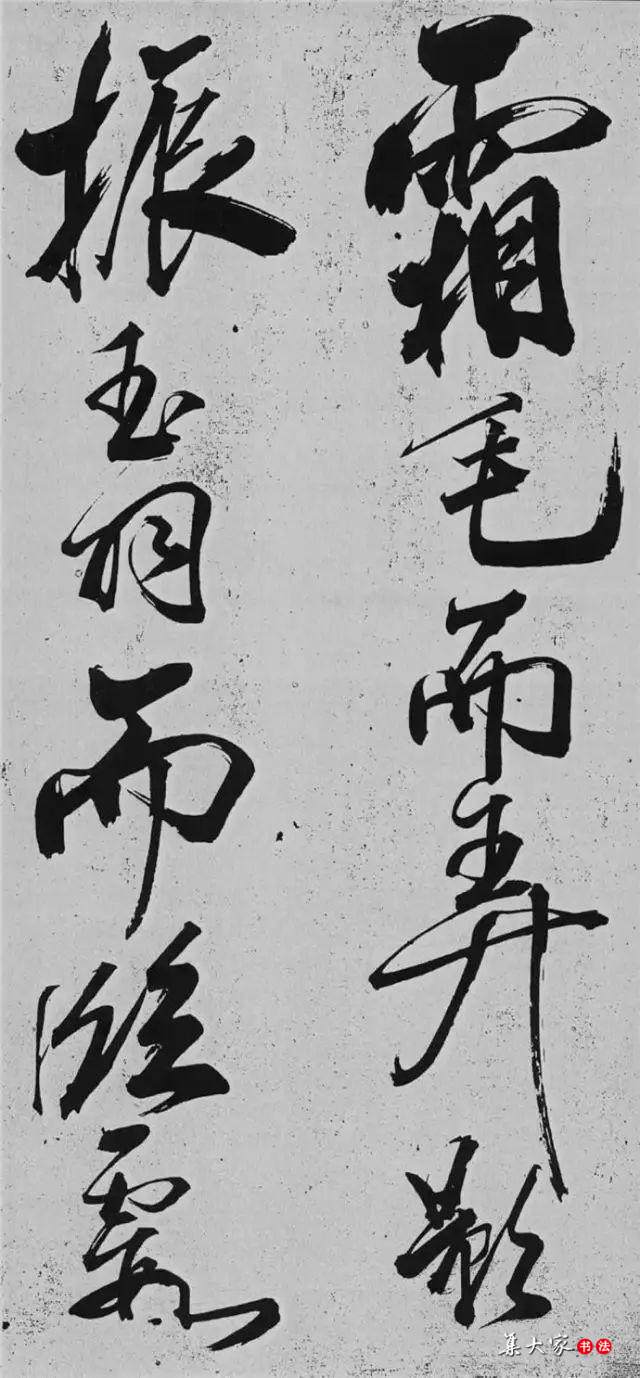 霜毛而弄影
振玉羽而臨霞
集大家书法